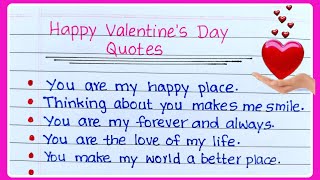 Happy Valentine's Day
Quotes
You are my happy place.
Thinking about you makes me smile.
You are my forever and always.
You are the love of my life.
You make my world a better place.